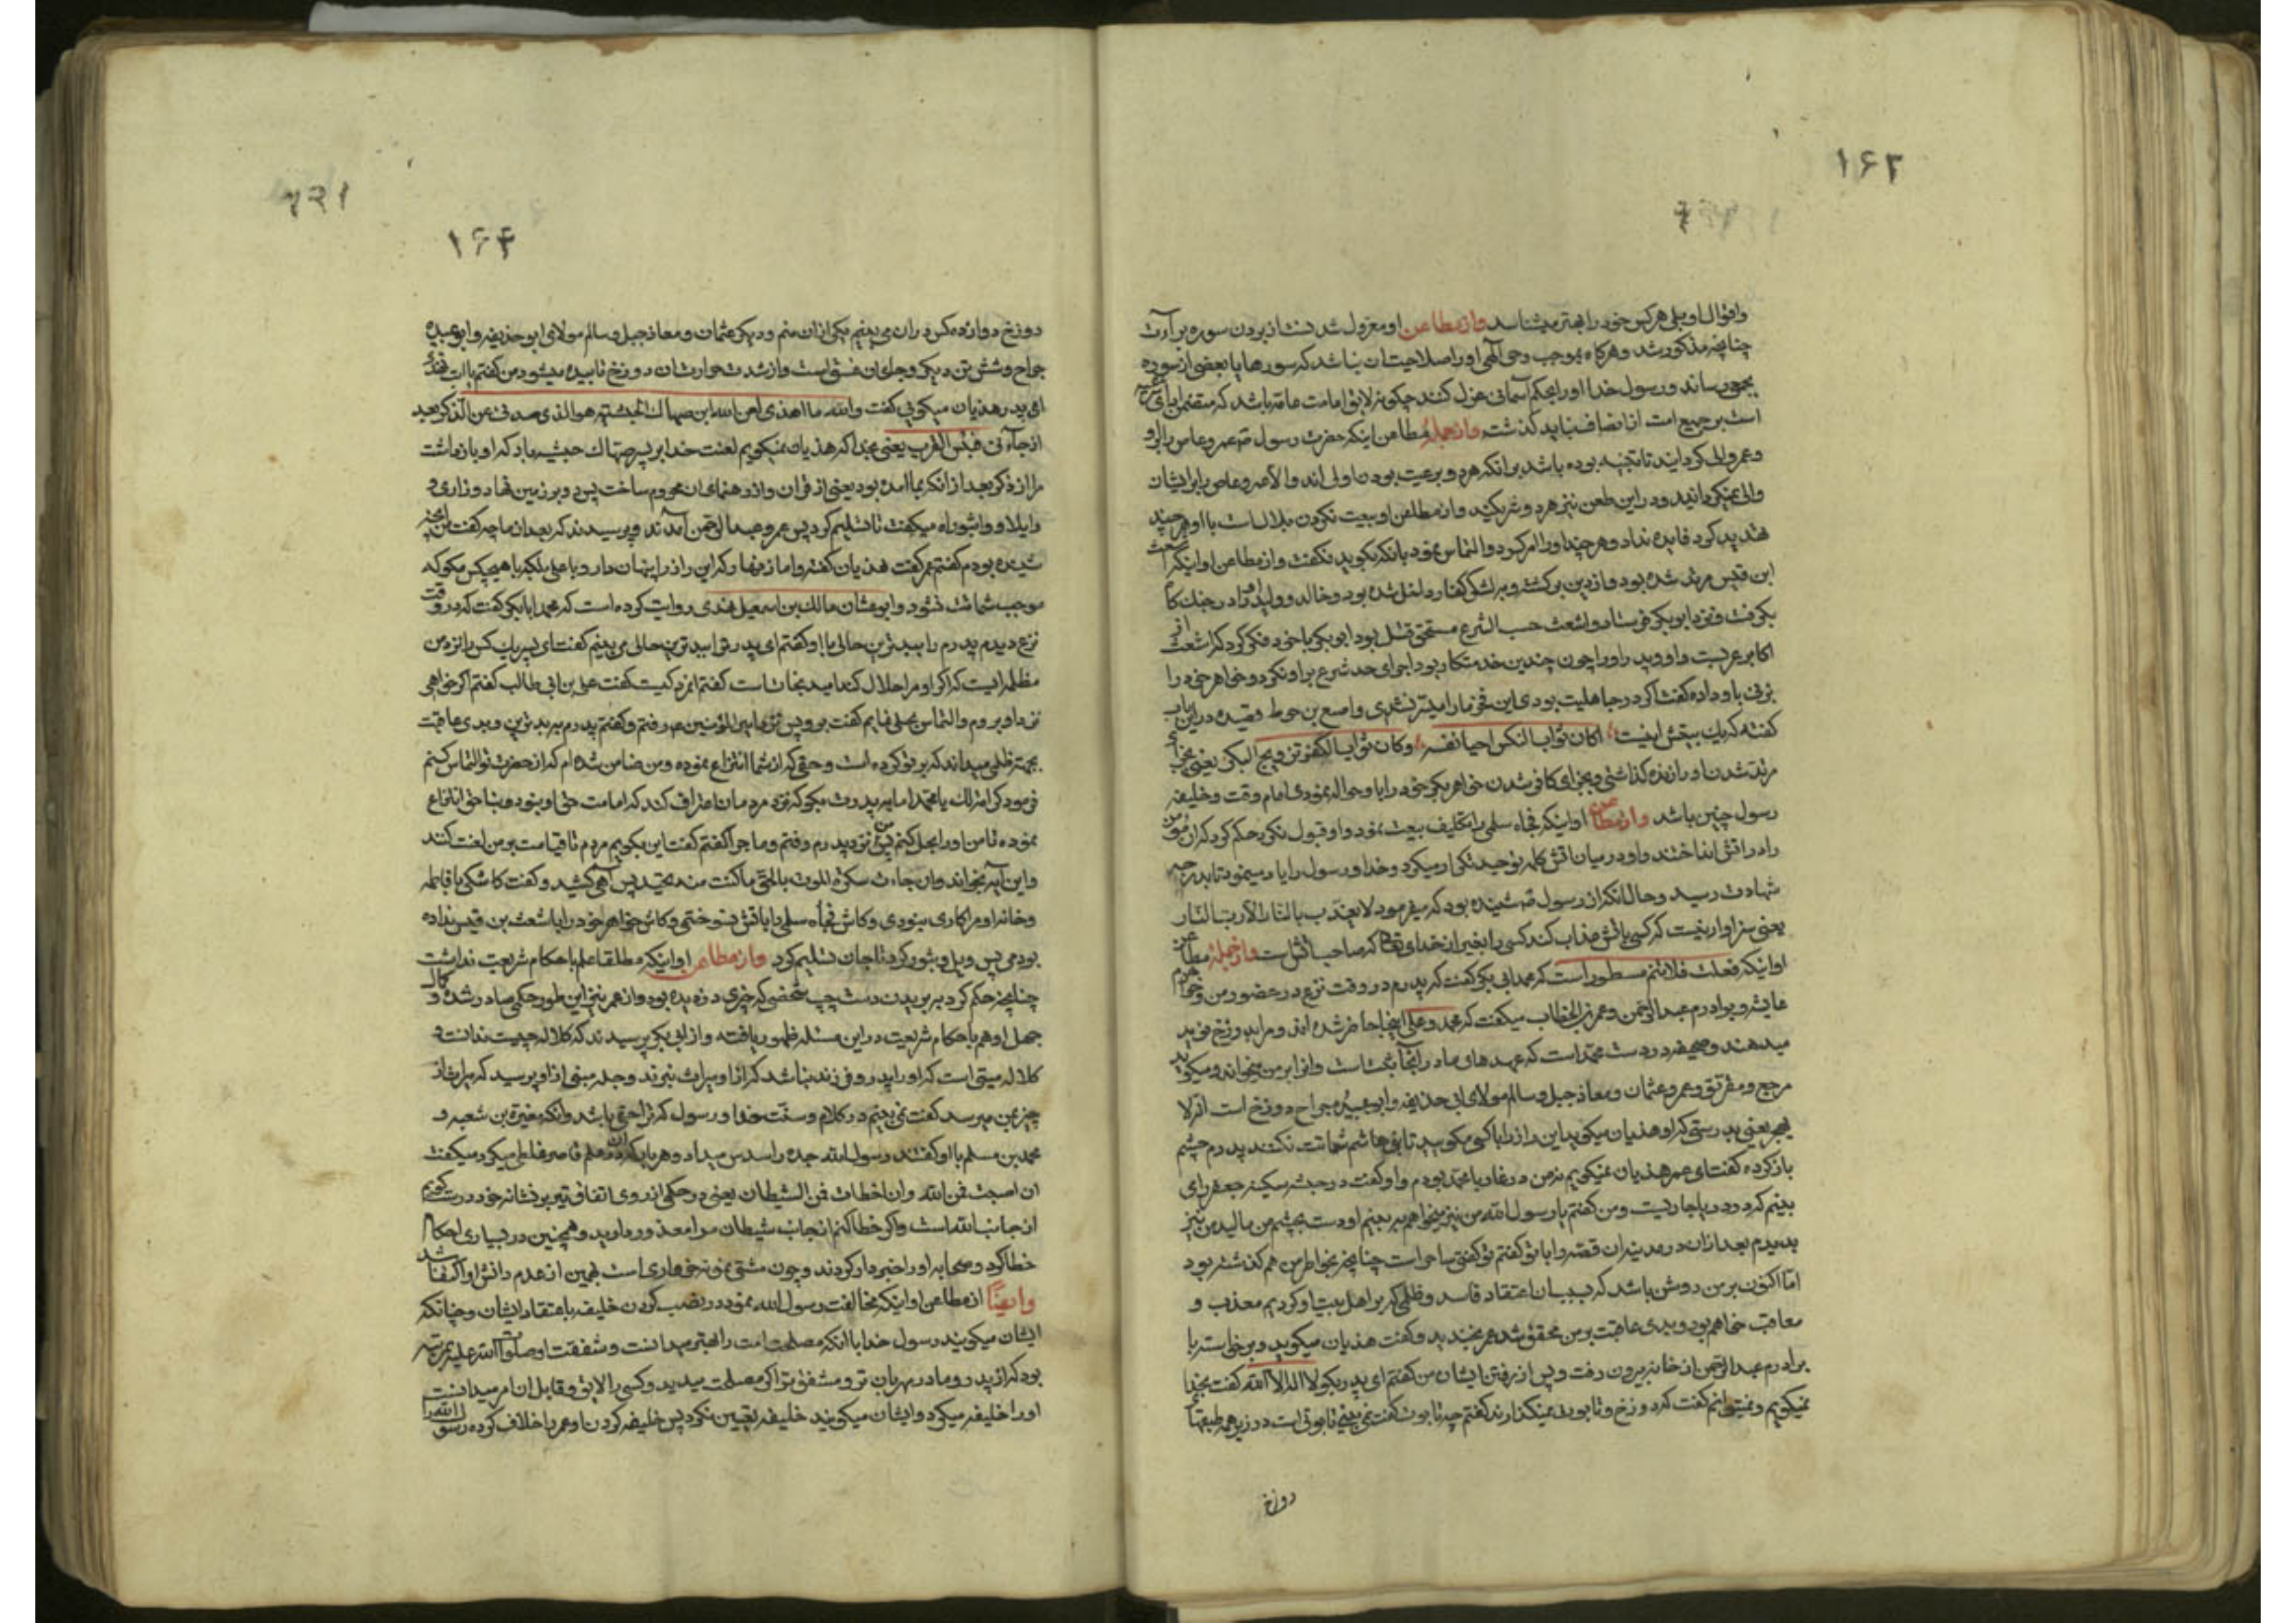 ۱۶۲
واقوال او بلی هرکس خود را بهتر میشناسد وازمطاعن او معزول شدنست از بردن سوره برآءت
چنانچه مذکور شد و هرکاه بموجب وحی الهی او را صلاحیت ان نباشد که سورها یا بعضی از سوره
رساند و رسول خدا او را بحکم آسمانی عزل کند چکونه لایق امامت عامه باشد که متضمن
است بر جمیع امت از انصاف نباید کذشت وازجمله مطاعن اینکه حضرت رسول ص عمرو عاص را بر او
وعمر والی کردانید تا تنبیه بوده باشد بر انکه هر دو برعیت بودن اولی اند والا عمرو عاص را بر ایشان
والی نمیکردانید و در این طعن نیز هر دو شریکند و از مطاعن او بیعت نکردن بلال است با او هر چند
تهدید کرد فایده نداد و هر چند او را امر کرد و التماس نمود بانکه بکوید نکفت و از مطاعن او اینکه اشعث
ابن قیس مرتد شده بود و از دین برکشته و بلشکر کفار داخل شده بود و خالد و ولید او را در جنک کاه
بکرفت و نزد ابوبکر فرستاد و اشعث حسب الشرع مستحق قتل بود ابوبکر با خود فکر کرد که اشعث از
اکابر عربست و او وپدر او را چون چندین خدمتکار بود اجرای حد شرع بر او نکرد و خواهر خود را
بزنی باو داده کفت اکر در جاهلیت بودی این فخر ما را میسر نشدی و اصبع بن حوط قصیده در این باب
کفته که یک بیتش اینست اکان ثوابا لنکس احیا نفسه وکان ثوابا لکفر تزویج البکر یعنی بجزای
مرتد شدن او را زنده کذاشتی و بجزای کافر شدن خواهر بکر خود را باو حواله نمودی امام وقت و خلیفه
رسول چنین باشد وازمطاعن او اینکه فجاه سلمی را تکلیف بیعت نمود و او قبول نکرد حکم کرد که ان مومن
را در اتش انداختند و او در میان اتش کلمه توحید تکرار میکرد و خدا و رسول را یاد مینمود تا بدرجه
شهادت رسید و حال انکه از رسول ص شنیده بود که میفرمود لا یعذب بالنار الا رب النار
یعنی سزاوار نیست که کسی باتش عذاب کند کسی را بغیر از خدای تعالی که صاحب اتش است وازجمله مطاعن
او اینکه فعلت فلانتم مسطور است که محمد ابی بکر کفت که پدرم در وقت نزع در حضور من و خواهرم
عایشه و برادرم عبد الرحمن و عمر بن الخطاب میکفت که محمد و علی اینجا حاضر شده اند و مرا بدوزخ نوید
میدهند و صحیفه در دست محمد است که عهدهای ما در انجا ثبت است و انرا بر من میخواند و میکوید
مرجع و مقر تو و عمر و عثمان و معاذ جبل و سالم مولای ابی حذیفه و ابو عبیده جراح دوزخ است انه لا
یهجر یعنی بدرستی که او هذیان میکوید این راز را با کسی مکویید تا بنی هاشم شماتت نکنند پدرم چشم
باز کرده کفت ای عمر هذیان نمیکویم نه من در غار با محمد بودم و او کفت در حبشه سکینه جعفر رای
بینم که در دریا جاریست و من کفتم یا رسول الله من نیز میخواهم به بینم او دست بچشم من مالید من نیز
بدیدم بعد از ان در مدینه ان قصه را با تو کفتم تو کفتی ساحر است چنانچه بخواطر من هم کذشته بود
اما اکنون بر من روشن باشد که بسبب ان اعتقاد فاسد و ظلمی که بر اهل بیت او کردیم معذب و
معاقب خواهم بود و بدی عاقبت بر من محقق شد عمر بخندید و کفت هذیان میکوید و برخاسته با
برادرم عبد الرحمن از خانه بیرون رفت و پس از رفتن ایشان من کفتم ای پدر بکو لا اله الا الله کفت بخدا
نمیکویم و نمیتوانم کفت که دوزخ و تابوت نمیکذارند کفتم چه تابوت کفت نمی بینی تابوتی است در زیر همه طبقهای
دوزخ
۱۶۳
دوزخ دوازده کس در ان می بینم یکی از ان منم و دیکر عثمان و معاذ جبل و سالم مولای ابو حذیفه و ابو عبیده
جراح و شش تن دیکر و جای ان فسق است و از شدت حرارتشان دوزخ تابیده میشود من کفتم یا ابت
ای پدر هذیان میکویی کفت والله ما اهذی لعن الله ابن صهاک الحبشیه هو الذی صدنی عن الذکر بعد
اذ جآءنی فبئس القرین یعنی بخدا که هذیان نمیکویم لعنت خدا بر پسر صهاک حبشیه باد که او باز داشت
مرا از ذکر بعد از انکه بما امده بود یعنی از قران و از رهنمای ان محروم ساخت پس رو بر زمین نهاد و زاری و
وایلا و واثبوراه میکفت تا تسلیم کرد پس عمر و عبد الرحمن آمدند و پرسیدند که بعد از ما چه کفت من انچه
شنیده بودم کفتم عمر کفت هذیان کفته و اما زنهار که این راز را پنهان دار و با علی بلکه با هیچکس مکو که
موجب شماتت نشود و ابو عثمان مالک بن اسمعیل هندی روایت کرده است که محمد ابابکر کفت که در وقت
نزع دیدم پدرم را ببدترین حالی با او کفتم ای پدر ترا ببدترین حالی می بینم کفت ای پسر یک کس را نزد من
مظلمه ایست که اکر او مرا حلال کند امید نجات است کفتم انمرد کیست کفت علی بن ابی طالب کفتم اکر خواهی
نزد او بروم و التماس بحلی نمایم کفت برو پس نزد امیر المؤمنین ع رفتم و کفتم پدرم به بدترین و بدی عاقبت
بجهت ظلمی میداند که بر تو کرده است و حقی که از شما انتزاع نموده و من ضامن شده ام که از حضرت تو التماس کنم
فرمود کرامة لک یا محمد اما به پدرت بکو که نزد مردمان اعتراف کند که امامت حق او بنود و بناحق انتزاع
نموده تا من او را بحل کنم پس من نزد پدرم رفتم و ماجرا کفتم کفت این بکویم مردم تا قیامت بر من لعنت کنند
و این آیه بخواند وان جاءت سکرة الموت بالحق ما کنت منه تحید پس آهی کشید و کفت کاشکی با فاطمه
و خانه او مرا کاری نبودی و کاش فجاه سلمی را باتش نسوختمی و کاش خواهر خود را باشعث بن قیس نداده
بودمی پس ویل و ثبور کرد تا جان تسلیم کرد وازمطاعن او اینکه مطلقا علم باحکام شریعت نداشت
چنانچه حکم کرد ببریدن دست چپ شخصی که چیزی دزدیده بود و از عمر نیز این طور حکمی صادر شده و کمال
جهل او هم باحکام شریعت در این مسئله ظهور یافته و از ابی بکر پرسیدند که کلاله چیست ندانست و
کلاله میتی است که او را پدر و فرزند نباشد که از او میراث نبرند و جده مبنی از او پرسید که میراث از
چیز بمن میرسد کفت نمی بینم در کلام و سنت خدا و رسول که ترا حقی باشد و انکه مغیرة بن شعبه و
محمد بن مسلم با او کفتند رسول الله جده را سدس میداد و هر باب که در علم قاصر غلطی میکرد میکفت
ان اصبت فمن الله وان اخطات فمن الشیطان یعنی در حکمی از روی اتفاق تیر بر نشانه خورد درست کویم
از جانب الله است و اکر خطا کنم از جانب شیطان مرا معذور دارید و همچنین در بسیاری احکام
خطا کرد و صحابه او را خبردار کردند و چون مشتی نمونه خرواری است بهمین از عدم دانش او اکتفا شد
وایضًا ازمطاعن او اینکه مخالفت رسول الله نمود در نصب کردن خلیفه باعتقاد ایشان و چنانکه
ایشان میکویند رسول خدا با انکه مصلحت امت را بهتر میدانست و شفقت او صلوات الله علیه بمرتبه
بود که از پدر و مادر مهربان تر و مشفق تر اکر مصلحت میدید و کسی را لایق و قابل ان امر میدانست
او را خلیفه میکرد و ایشان میکویند خلیفه تعیین نکرد پس خلیفه کردن او عمر را خلاف کرده رسول الله را